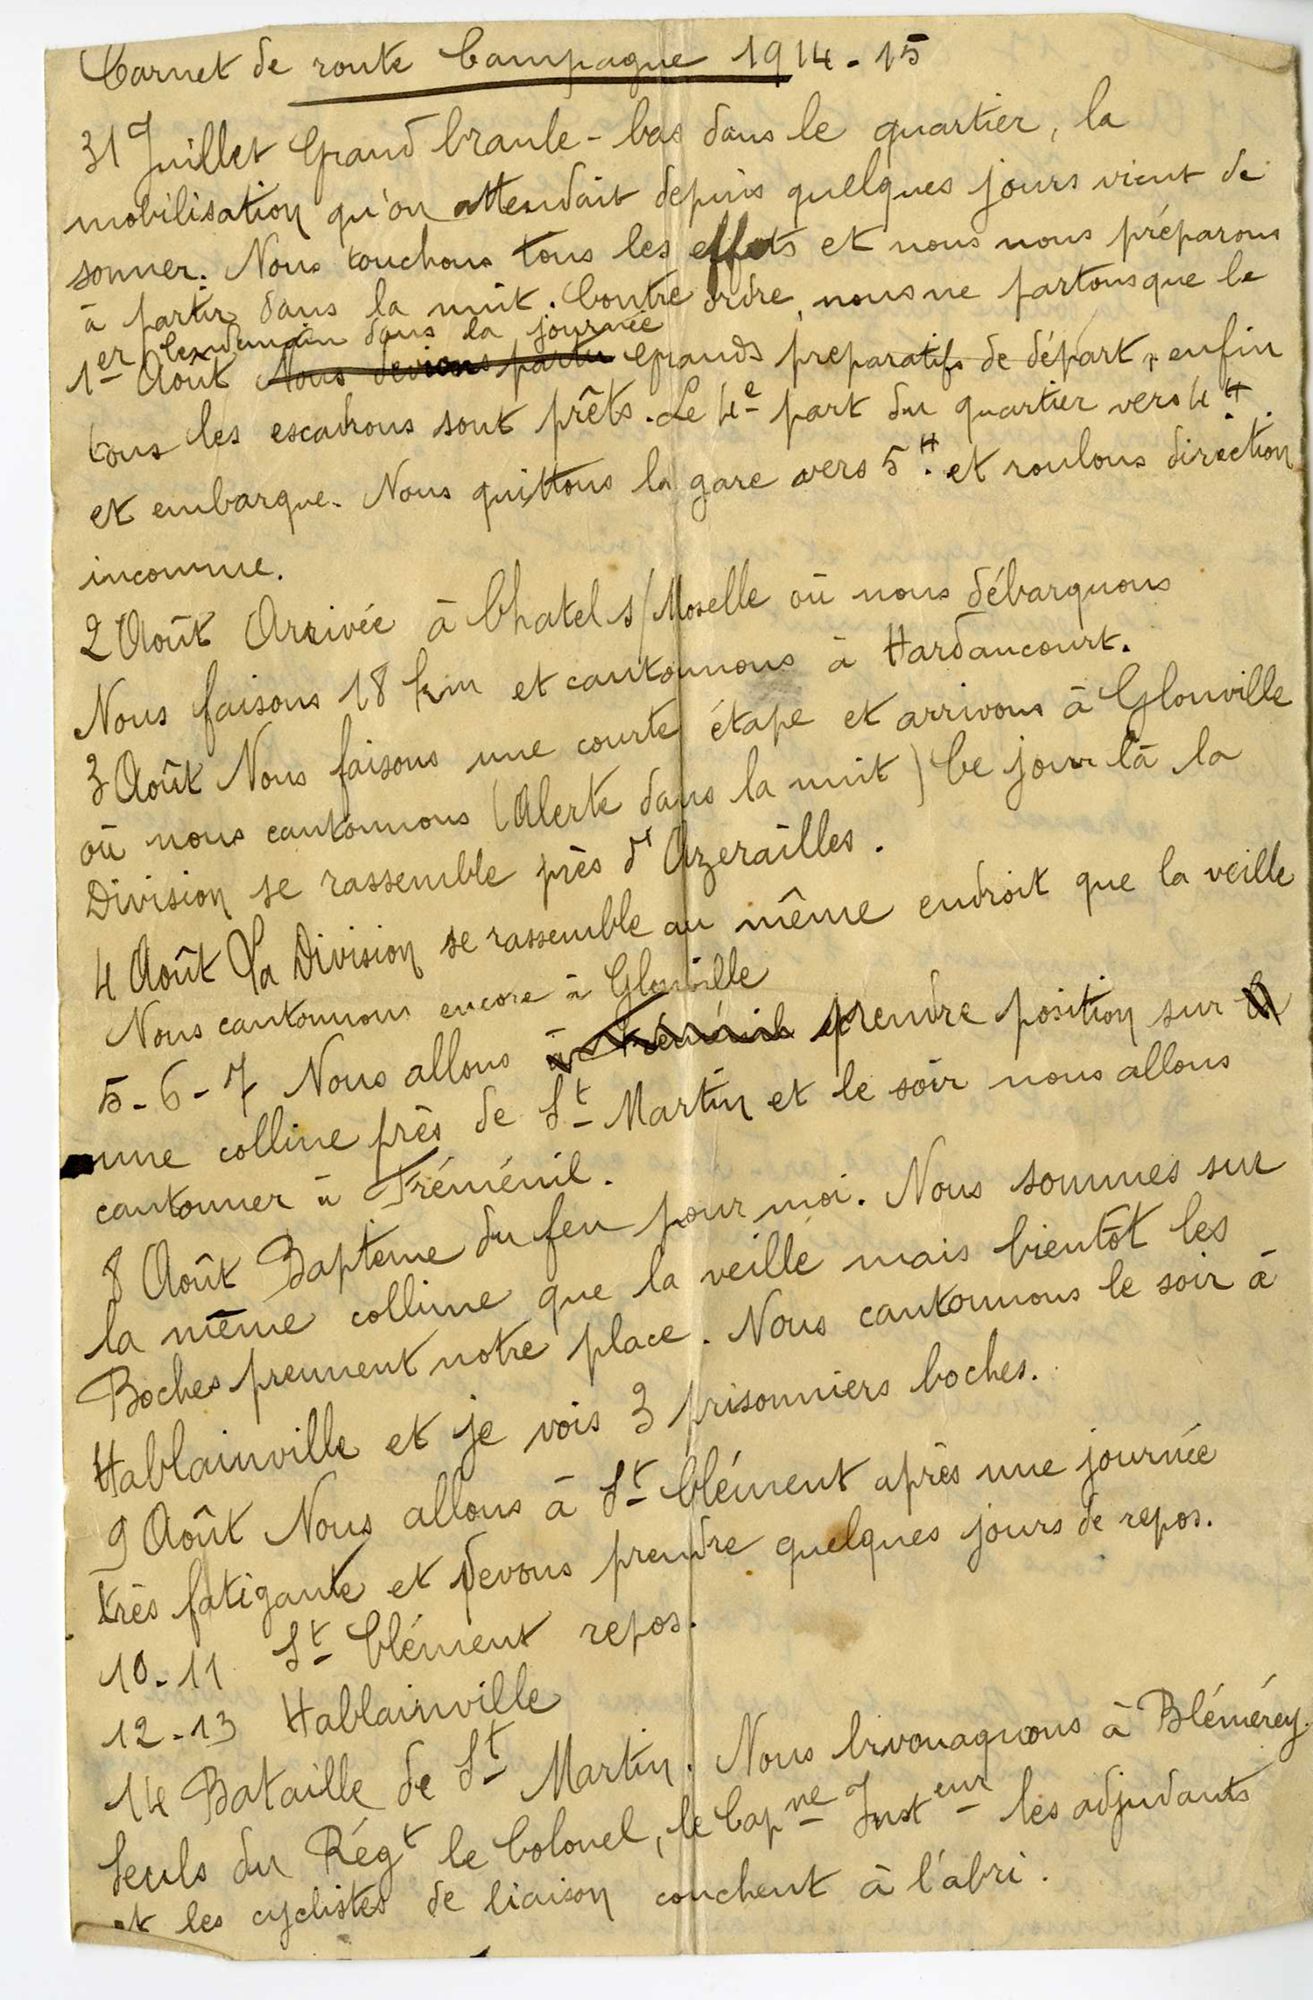 Carnet de route Campagne 1914-15
31 Juillet Grand branle-bas dans le quartier, la
mobilisation qu'on attendait depuis quelques jours vient de
sonner. Nous touchons tous les effets et nous nous préparons
à partir dans la nuit. Contre ordre, nous ne partons que le
lendemain dans la journée
1er Août Nous devions partir Grands preparatifs de départ, enfin
tous les escadrons sont prêts. Le 4e part du quartier vers 4H.
et embarque. Nous quittons la gare vers 5H. et roulons direction
inconnue.
2 Août Arrivée à Chatel s/Moselle où nous débarquons
Nous faisons 18 km et cantonnons à Hardancourt.
3 Août Nous faisons une courte étape et arrivons à Glonville
où nous cantonnons (Alerte dans la nuit) Ce jour là la
Division se rassemble près d'Azerailles.
4 Août La Division se rassemble au même endroit que la veille
Nous cantonnons encore à Glonville
5-6-7 Nous allons à Fréménil prendre position sur
une colline près de St Martin et le soir nous allons
cantonner à Fréménil.
8 Août Bapteme du feu pour moi. Nous sommes sur
la même colline que la veille mais bientôt les
Boches prennent notre place. Nous cantonnons le soir à
Hablainville et je vois 3 prisonniers boches.
9 Août Nous allons à St Clément après une journée
très fatigante et devons prendre quelques jours de repos.
10-11 St Clément repos.
12-13 Hablainville
14 Bataille de St Martin. Nous bivouaquons à Blémérey.
Seuls du Régt le Colonel, le Capne Insteur les adjudants
et les cyclistes de liaison couchent à l'abri.